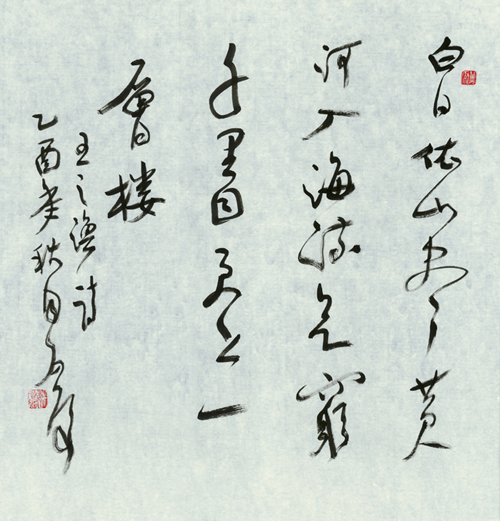 白日依山尽黄
河入海流欲窮
千里目更上一
層楼
王之涣诗
乙酉年秋月